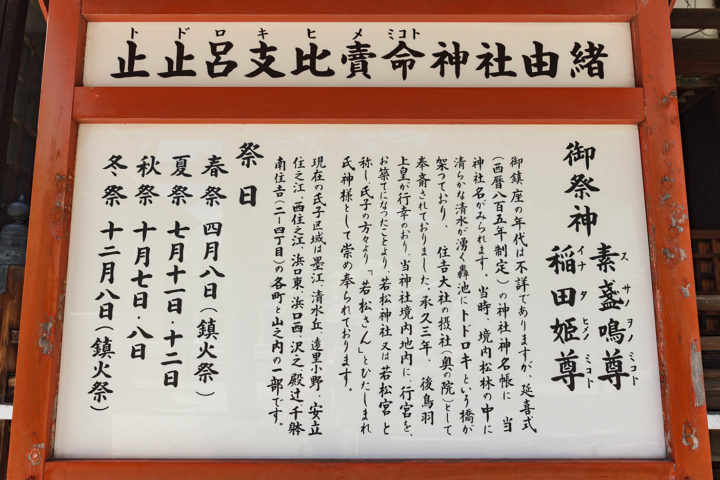 トドロキヒメミコト
止止呂支比賣命神社由緒
御祭神
素盞嗚尊
スサノヲノミコト
稲田姫尊
イナタヒメノミコト
御鎮座の年代は不詳でありますが、延喜式
(西暦八百五年制定)の神社神名帳に 当
神社名がみられます。当時、境内松林の中に
清らかな清水が湧く轟池にトドロキという橋が
架つており、住吉大社の摂社(奥の院)として
奉斎されておりました。承久三年、後鳥羽
上皇が行幸のおり、当神社境内地内に、行宮を、
お築てになつたことより、若松神社又は若松宮と
称し、氏子の方々より「若松さん」とひたしまれ
氏神様として崇め奉られております。
現在の氏子区域は墨江、清水丘、遠里小野、安立
住之江、西住之江、浜口東、浜口西、沢之殿辻千躰
南住吉(二-四丁目)の各町と山之内の一部です。
祭日
春祭 四月八日(鎮火祭)
夏祭 七月十一日・十二日
秋祭 十月七日・八日
冬祭 十二月八日(鎮火祭)